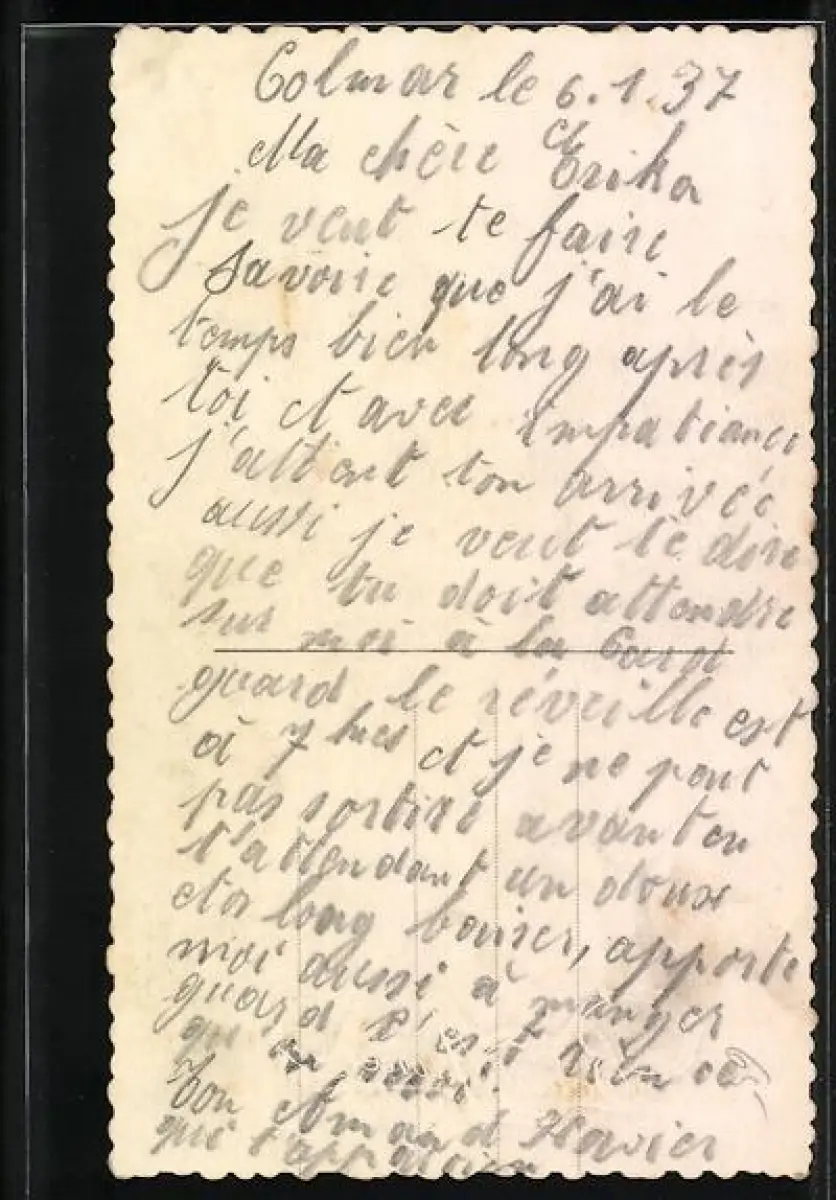 Colmar le 6.1.37
Ma chère Erika
je veut te faire
savoire que j'ai le
temps bien long après
toi et avec impatiance
j'attent ton arrivée
aussi je veut te dire
que tu doit attendre
sur moi à la
guard le réveille est
à 7 hres et je ne peut
pas sortire avant en
t'attendant un doux
et long baiser, apporte
moi aussi à manger
guard c'est rien
Ton Amand Xavier
qui t'